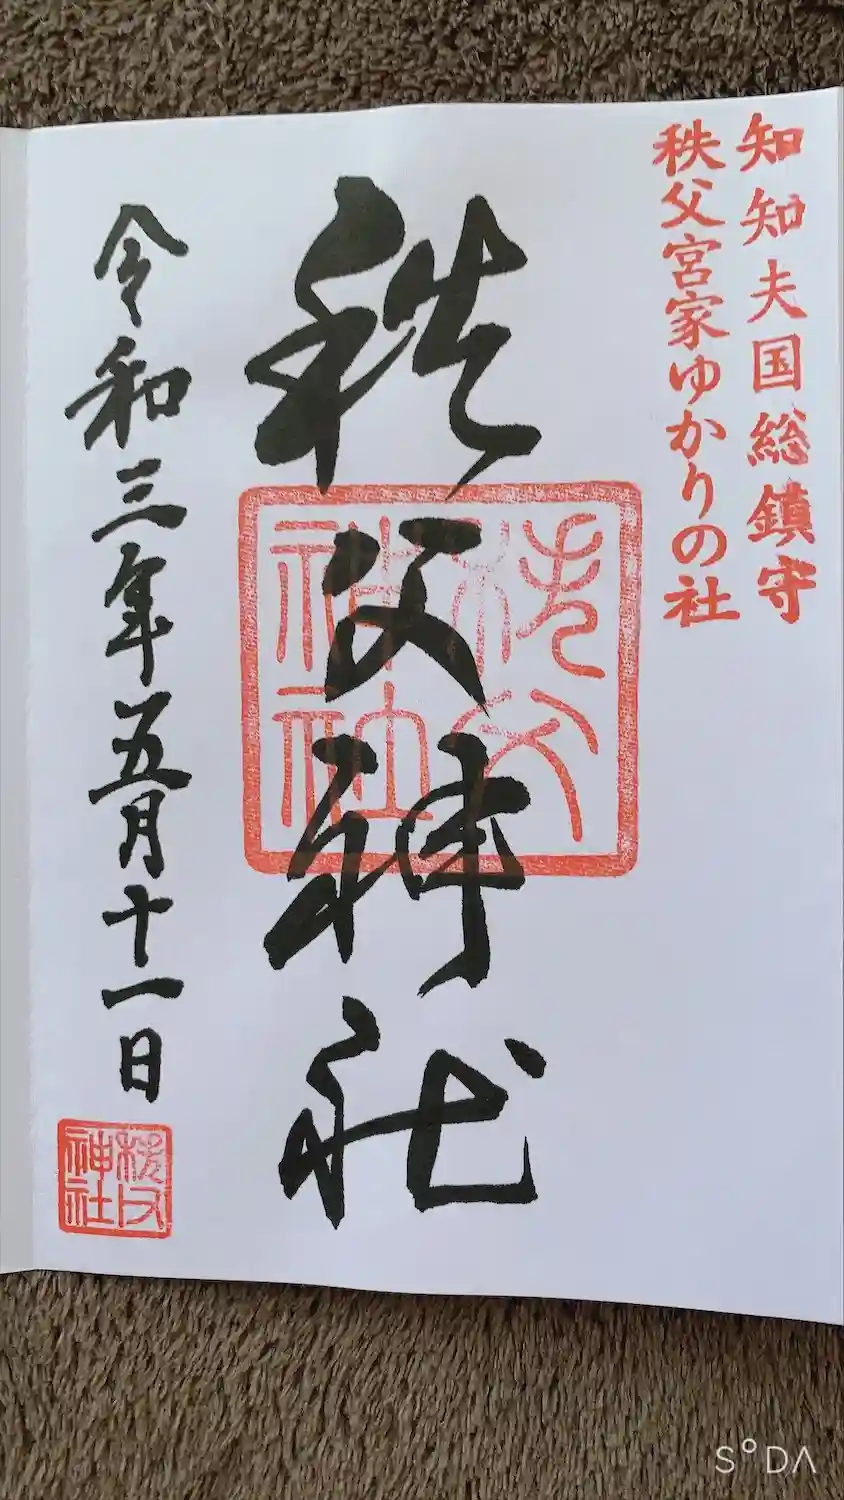 知知夫国総鎮守
秩父宮家ゆかりの社
秩父神社
秩父
神社
令和三年五月十一日
秩父
神社
SODA